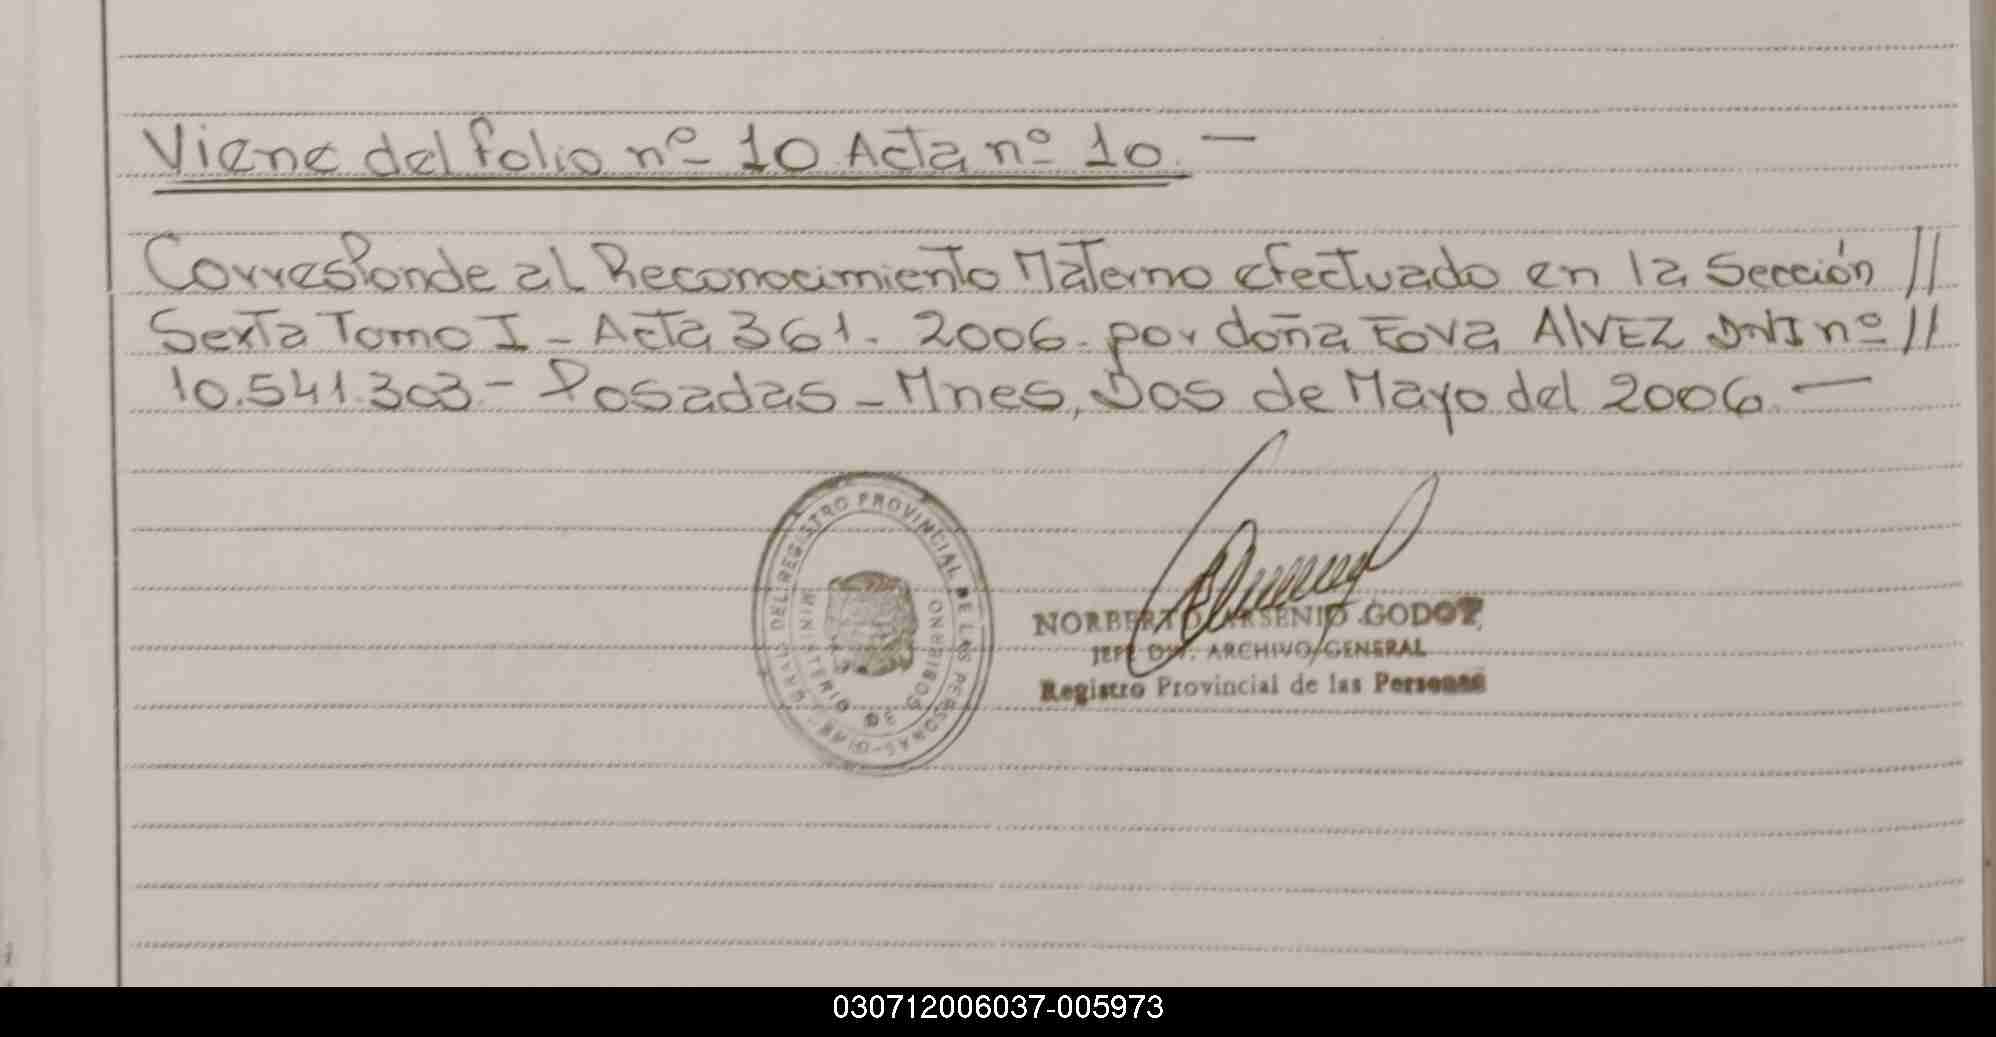 Viene del folio nº 10 Acta nº 10. —
Corresponde al Reconocimiento Materno efectuado en la Sección //
Sexta Tomo I - Acta 361 - 2006 - por doña Eova AlVEZ DNI nº //
10.541.303 - Posadas - Mnes, Dos de Mayo del 2006. —
DEL REGISTRO PROVINCIAL DE LAS PERSONAS
MINISTERIO DE GOBIERNO
NORBERTO ARSENIO GODOY
JEFE DIV. ARCHIVO GENERAL
Registro Provincial de las Personas
030712006037-005973